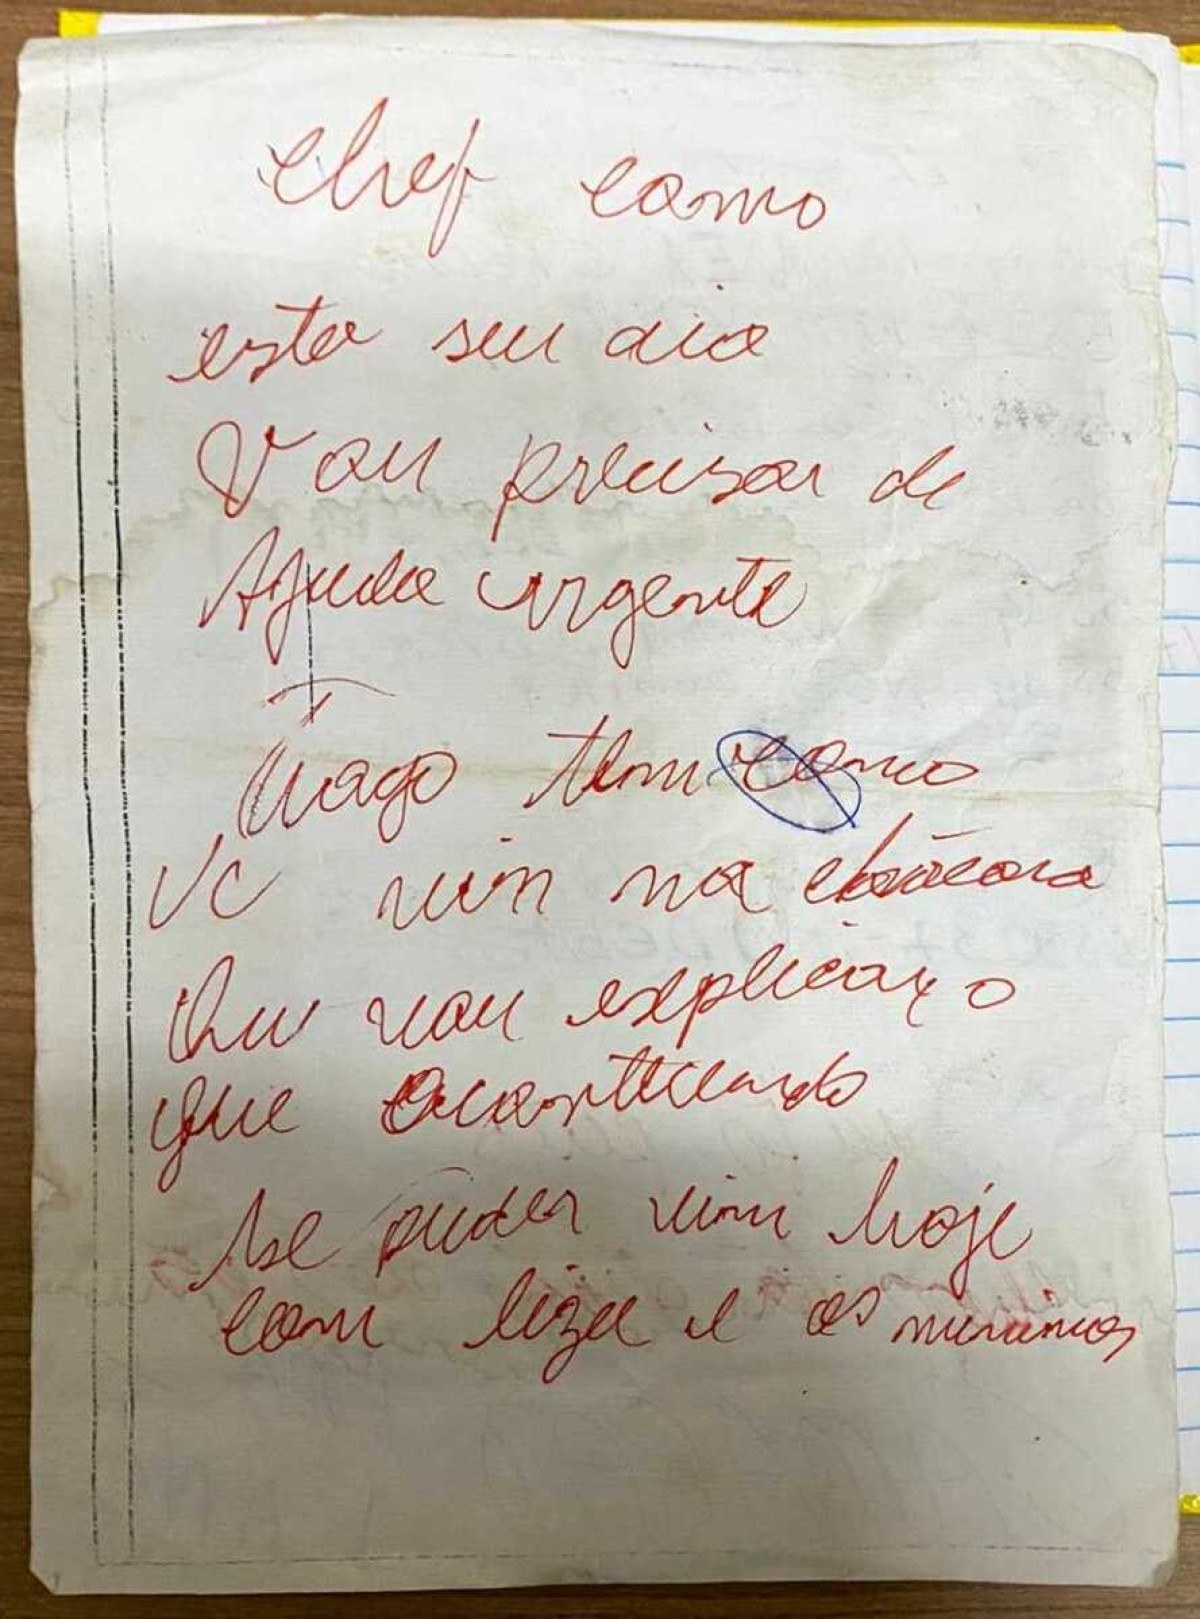 chef como
esta seu dia
Vou precisar de
Ajuda urgente
Tiago tem como
Vc vim na chácara
Eu vou explicar o
que acontecendo
se puder vim hoje
com liza e os meninos